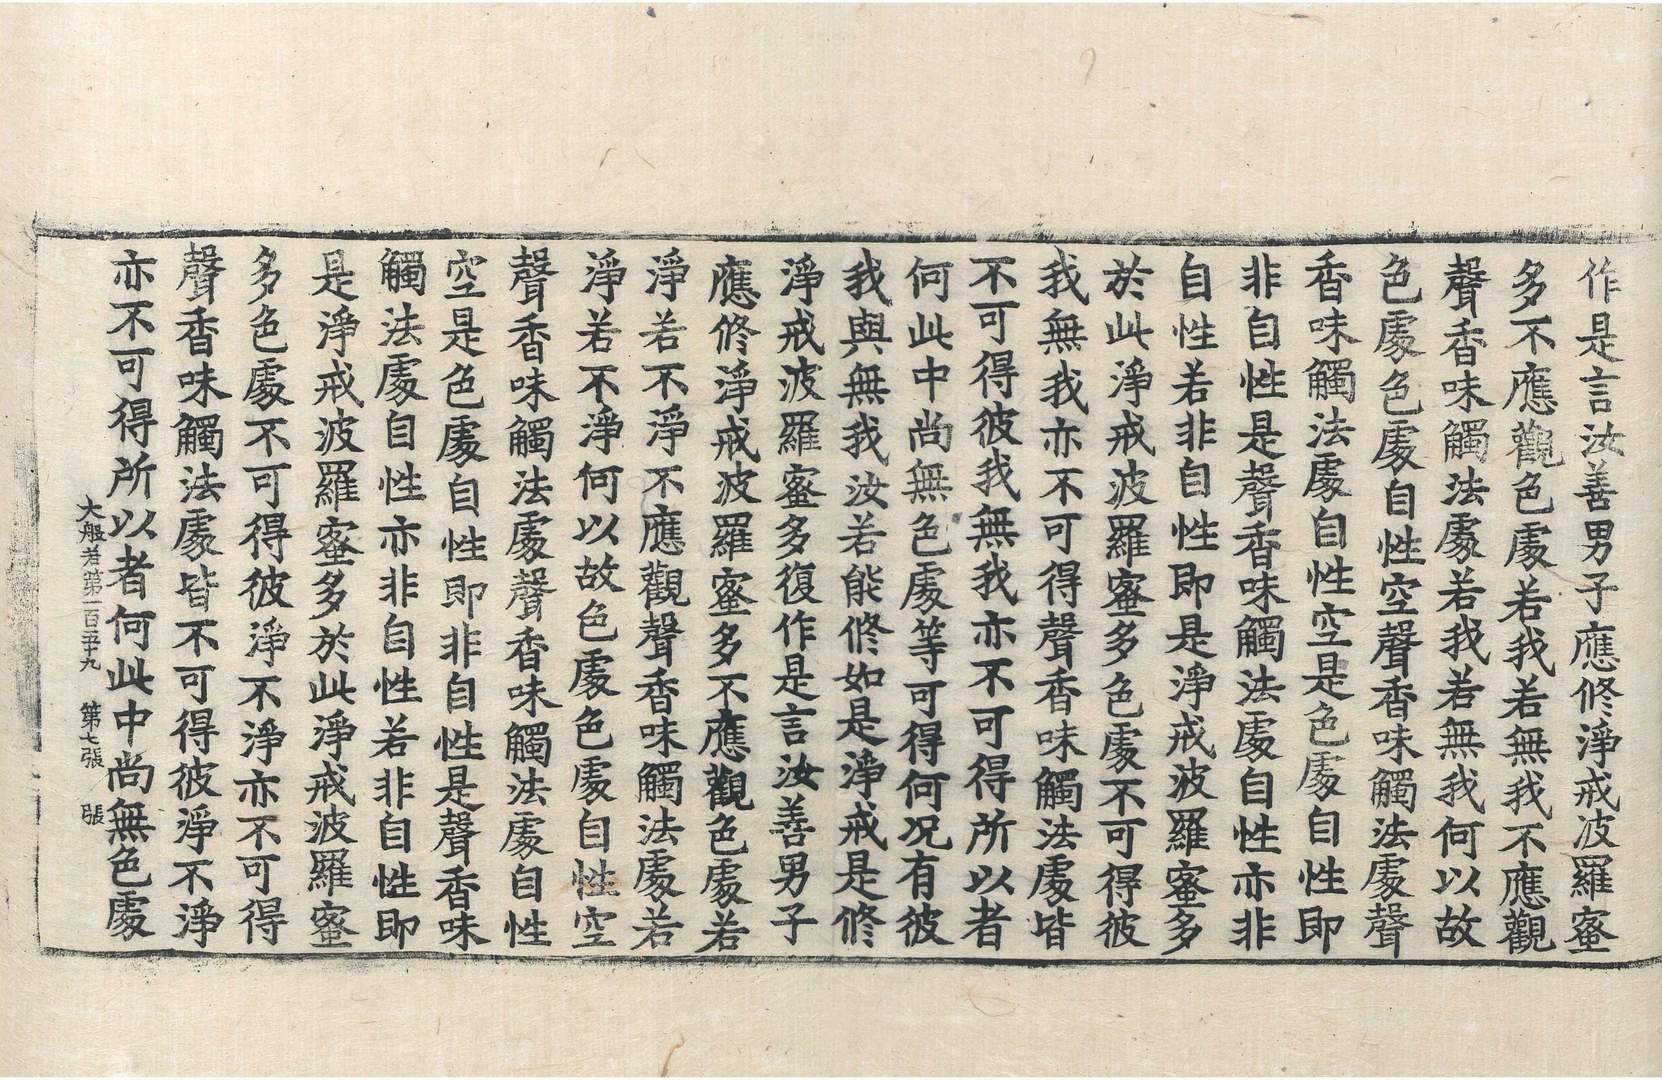 作是言汝善男子應修淨戒波羅蜜
多不應觀色處若我若無我不應觀
聲香味觸法處若我若無我何以故
色處色處自性空聲香味觸法處聲
香味觸法處自性空是色處自性即
非自性是聲香味觸法處自性亦非
自性若非自性即是淨戒波羅蜜多
於此淨戒波羅蜜多色處不可得彼
我無我亦不可得聲香味觸法處皆
不可得彼我無我亦不可得所以者
何此中尚無色處等可得何況有彼
我與無我汝若能修如是淨戒是修
淨戒波羅蜜多復作是言汝善男子
應修淨戒波羅蜜多不應觀色處若
淨若不淨不應觀聲香味觸法處若
淨若不淨何以故色處色處自性空
聲香味觸法處聲香味觸法處自性
空是色處自性即非自性是聲香味
觸法處自性亦非自性若非自性即
是淨戒波羅蜜多於此淨戒波羅蜜
多色處不可得彼淨不淨亦不可得
聲香味觸法處皆不可得彼淨不淨
亦不可得所以者何此中尚無色處
大般若第一百五十九 第七張 張